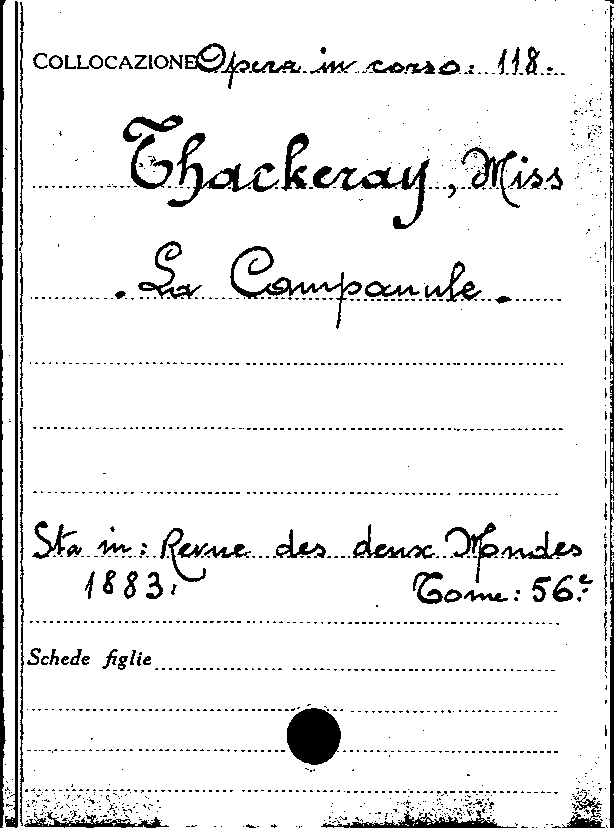 COLLOCAZIONE Opera in corso: 118.
Thackeray, Miss
. La Campanule .
Sta in: Revue des deux Mondes
1883. Tome: 56.e
Schede figlie